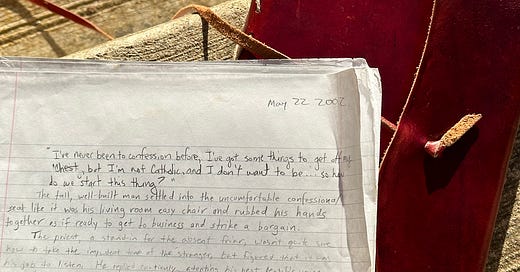 May 22 2002
"I've never been to confession before, I've got some things to get off my
chest, but I'm not Catholic, and I don't want to be... so how
do we start this thing?"
The tall, well-built man settled into the uncomfortable confessional
seat like it was his living room easy chair and rubbed his hands
together as if ready to get to business and strike a bargain.
The priest, a standin for the absent friar, wasn't quite sure
how to take the impudent tone of the stranger, but figured that it was
his job to listen. He replied cautiously,